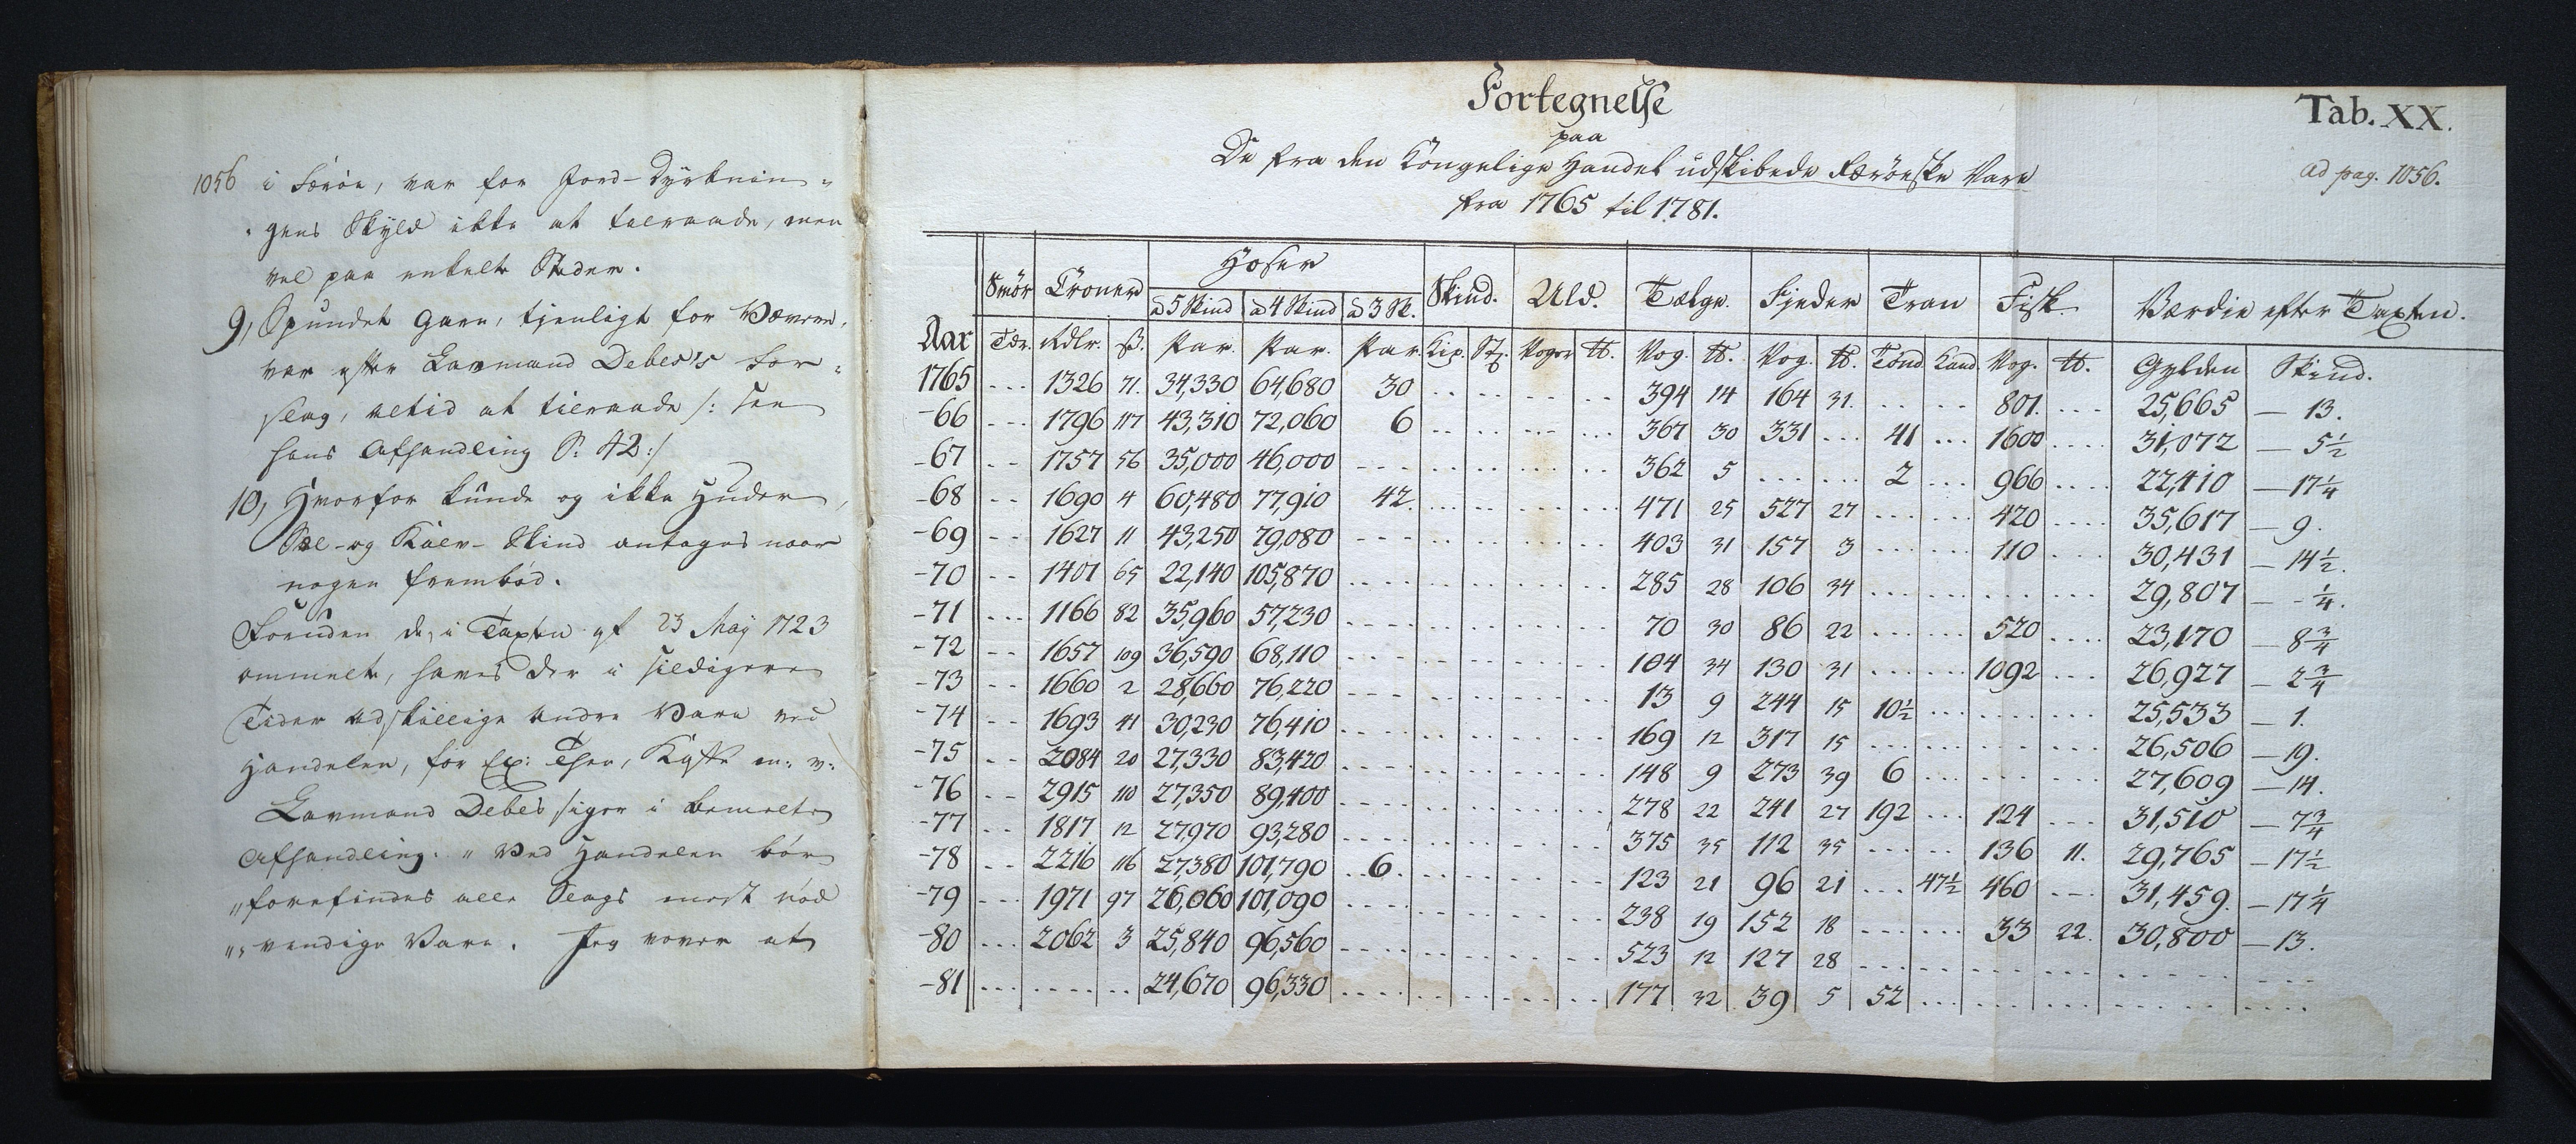 1056 i Færöe, var for Jord-Dyrknin-
gens Skyld ikke at tilraade, men
vel paa enkelte Steder.
9, Spundet Garn, tjenligt for Vævere,
var efter Lavmand Debes's For-
slag, altid at tilraade /: see
hans Afhandling S. 42 :/
10, Hvorfor kunde og ikke Huder,
Sæl- og Kalv-Skind antages naar
nogen frembød.
Foruden de, i Taxten af 23 Maij 1723
ommelte, haves der i sildigere
Tider adskillige andre Vare ved
Handelen, for Ex: Thee, Kaffe m: v:
Lavmand Debes siger i bemelte
Afhandling: "Ved Handelen bör
"forefindes alle Slags mest nöd
"vendige Vare. Jeg vover at
Fortegnelse
paa
De fra den Kongelige Handel udskibede Færöeske Vare
fra 1765 til 1781.
Tab. XX.
ad pag. 1056.
Smör Croner Hoser Skind. Uld. Talge. Fjeder Tran Fisk. Værdie efter Taxten.
a 5 Skind a 4 Skind a 3 Sk.
Aar Tdr. Rdlr. ß. Par. Par. Par. Kip. St. Voger ℔. Vog. ℔. Vog. ℔. Tönd. Kand. Vog. ℔. Gylden Skind.
1765 ... 1326 71. 34,330 64,680 30 .. .. .. .. 394 14 164 31. .. .. 801. ... 25,665 — 13.
-66 ... 1796 117 43,310 72,060 6 .. .. ... ... 367 30 331 ... 41 ... 1600 .... 31,072 — 5½
-67 .. 1757 56 35,000 46,000 ... .. .. .. .. 362 5 ... ... 2 ... 966 .... 22,410 — 17¼
-68 .. 1690 4 60,480 77,910 42. ... .. .. .. 471 25 527 27 ... ... 420 .... 35,617 — 9.
-69 .. 1627 11 43,250 79,080 ... .. .. .. .. 403 31 157 3 ... ... 110 ... 30,431 — 14½.
-70 .. 1401 65 22,140 105,870 ... .. .. .. .. 285 28 106 34 ... ... ... ... 29,807 — - ¼.
-71 ... 1166 82 35,960 57,230 ... .. .. .. .. 70 30 86 22 ... ... 520 .... 23,170 — 8¾
-72 .. 1657 109 36,590 68,110 ... .. .. .. .. 104 34 130 31 ... ... 1092 ... 26,927 — 2¾
-73 .. 1660 2 28,660 76,220 ... .. .. .. .. 13 9 244 15 10½ ... ... ... 25,533 — 1.
-74 .. 1693 41 30,230 76,410 ... .. .. .. .. 169 12 317 15 ... ... ... ... 26,506 — 19.
-75 .. 2084 20 27,330 83,420 ... .. .. .. .. 148 9 273 39 6 ... ... ... 27,609 — 14.
-76 .. 2915 110 27,350 89,400 ... .. .. .. .. 278 22 241 27 192 ... 124 ... 31,510 — 7¾
-77 .. 1817 12 27,970 93,280 ... .. .. .. .. 375 35 112 35 ... .. 136 11. 29,765 — 17½
-78 .. 2216 116 27,380 101,790 ..6. .. .. .. .. 123 21 96 21 ... 47½ 460 ... 31,459. — 17¼
-79 ... 1971 97 26,060 101,090 ... .. .. .. .. 238 19 152 18 ... ... 33 22. 30,800 — 13.
-80 ... 2062 3 25,840 96,560 ... .. .. .. .. 523 12 127 28 ... ... ... ... ... ...
-81 ... .... .. 24,670 96,330 ... .. .. .. .. 177 32 39 5 52 ... ... ... ... ....